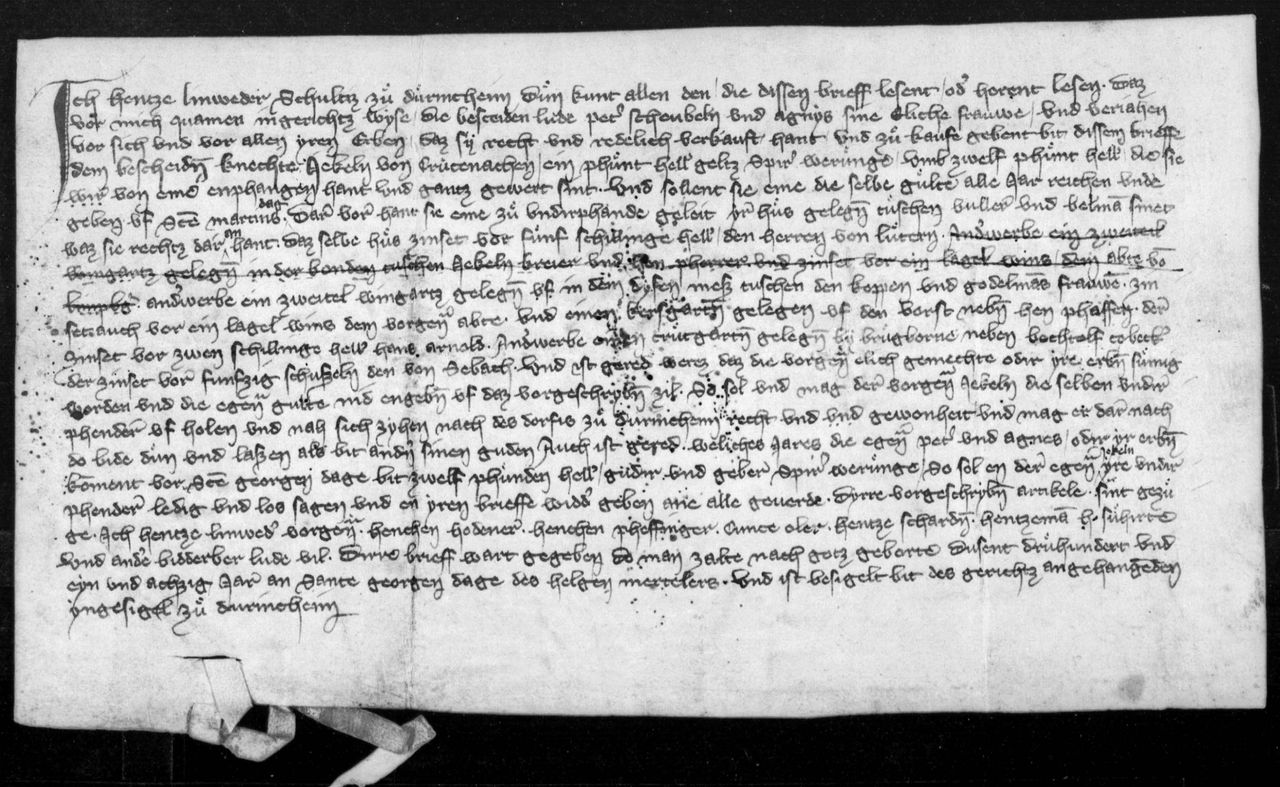 Ich hentze linweder Schultiz zů dŭrincheim Důn kunt allen den / die dissen brieff lesent / od' horent lesen. Daz
vor mich quamen in gerichtz wyse / die besceiden lude pet' scheubeln vnd agnys sine Eliche frauwe / vnd veriahen
vor sich vnd vor allen yren Erben / daz sij recht vnd redelich verkauft hant vnd zů kaufe gebent bit dissem brieffe
dem bescheidn̄ knechte Jekeln von Crucenachen / ein phůnt hell' geltz Spir' werůnge / vmb zwelf phůnt hell' / die sie
wir' von eme enphangen hant vnd gantz gewert sint. Vnd sollent sie eme die selbe gůlte alle Jar reichen vnde
geben vf Sēte martins dag. Dar vor hant sie eme zů vndirphande geleit yr hůs gelegn̄ tůschen buller vnd belmā sinet
waz sie rechtz dar an hant. Daz selbe hůs zinset vor fůnf schillinge hell' / den herren von lůtern. And'werbe ein zweiteil
wingartz gelegn̄ in der benden tuschen Jekeln breier vnd hen pherrer vnd zinset vor ein lagel wins / dem abte vō
and'werbe ein zweitel wingartz gelegn̄ vf in dem dysen mesz tuschen den koppen vnd godelmās frauwe. zin
set auch vor ein lagel wins dem vorgen̄ abte. Vnd einen kersgartn̄ gelegen vf den vorst nebn̄ hen phaffen. der
zinset vor zwen schillinge hell' hans arnold. And'werbe einen crutgartn̄ gelegn̄ by brůgborne neben bechtolf
der zinset vor funfzig schuszeln den von Sebach. Vnd ist gered werez daz die vorgen̄ elich gemechte odir yre erbn̄ sůmig
worden vnd die egen̄ gulte nid engebn̄ vf daz vorgeschrybn̄ zil. So sol vnd mag der vorgen̄ Jekeln die selben vndir
phender vf holen vnd nah sich zyhen nach des dorfis zů dŭrincheim recht vnd vnd gewonheit vnd mag er dar nach
do bide dun vnd laszen als bit andn̄ sinen guden Auch ist gered. weliches Jares die egen̄ pet' vnd agnes / odir yr erbn̄
koment vor Sēte georgen dage bit zwelf phůnden hell' / gůdir vnd geber Spir' werůnge / So sol en der egen̄ Jekeln yre vndir
phender ledig vnd los sagen vnd en yren brieffe widd' geben ane alle geuerde. Dyrre vorgeschrybn̄ artikele sint gezů
ge. Ich hentze linwed' vorgen̄. henchen hodener. henchen pheffinger. Cunce oler. hentze schardn̄. hentzemā h. sůhirte
vnd and'e bidderber lude vil. Dirre brieff wart gegeben do man zalte nach gotz geborte Dusent drůhundert vnd
eyn vnd achzig Jar an Sante georgen dage des helgen mertelers. Vnd ist besigelt bit des gerichtz angehangeden
yngesigel zů dŭrincheim